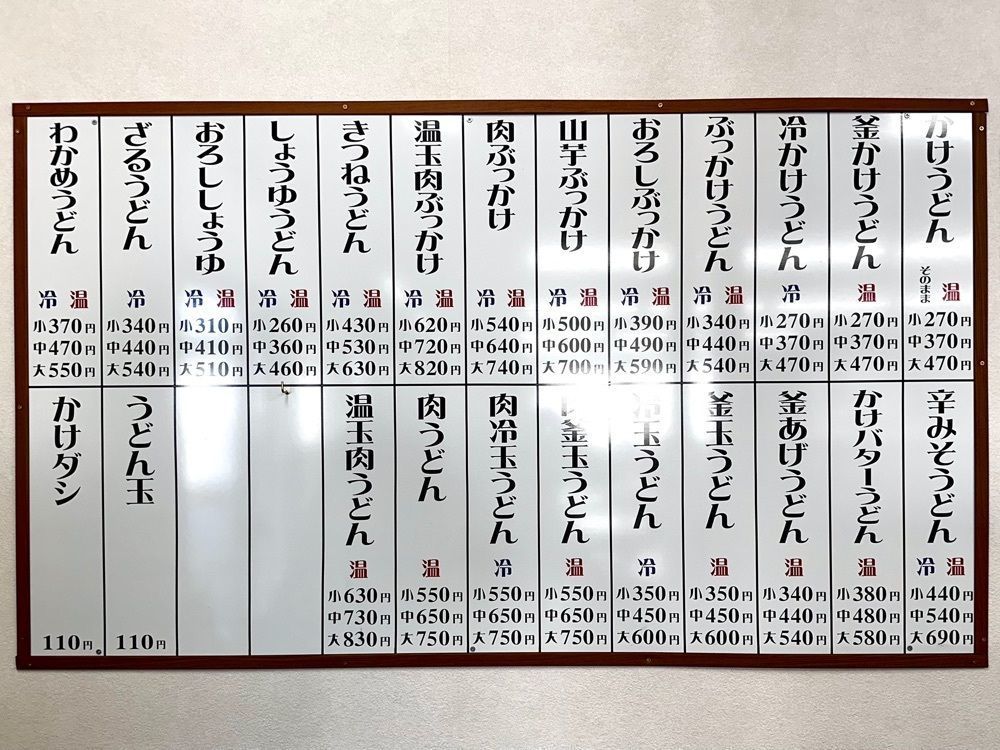 かけうどん
そのまま 温
小270円
中370円
大470円
釜かけうどん
温
小270円
中370円
大470円
冷かけうどん
冷
小270円
中370円
大470円
ぶっかけうどん
冷 温
小340円
中440円
大540円
おろしぶっかけ
冷 温
小390円
中490円
大590円
山芋ぶっかけ
冷 温
小500円
中600円
大700円
肉ぶっかけ
冷 温
小540円
中640円
大740円
温玉肉ぶっかけ
冷 温
小620円
中720円
大820円
きつねうどん
冷 温
小430円
中530円
大630円
しょうゆうどん
冷 温
小260円
中360円
大460円
おろししょうゆ
冷 温
小310円
中410円
大510円
ざるうどん
冷
小340円
中440円
大540円
わかめうどん
冷 温
小370円
中470円
大550円
辛みそうどん
冷 温
小440円
中540円
大690円
かけバターうどん
温
小380円
中480円
大580円
釜あげうどん
温
小340円
中440円
大540円
釜玉うどん
温
小350円
中450円
大600円
冷玉うどん
冷
小350円
中450円
大600円
肉釜玉うどん
温
小550円
中650円
大750円
肉冷玉うどん
冷
小550円
中650円
大750円
肉うどん
温
小550円
中650円
大750円
温玉肉うどん
温
小630円
中730円
大830円
うどん玉
110円
かけダシ
110円